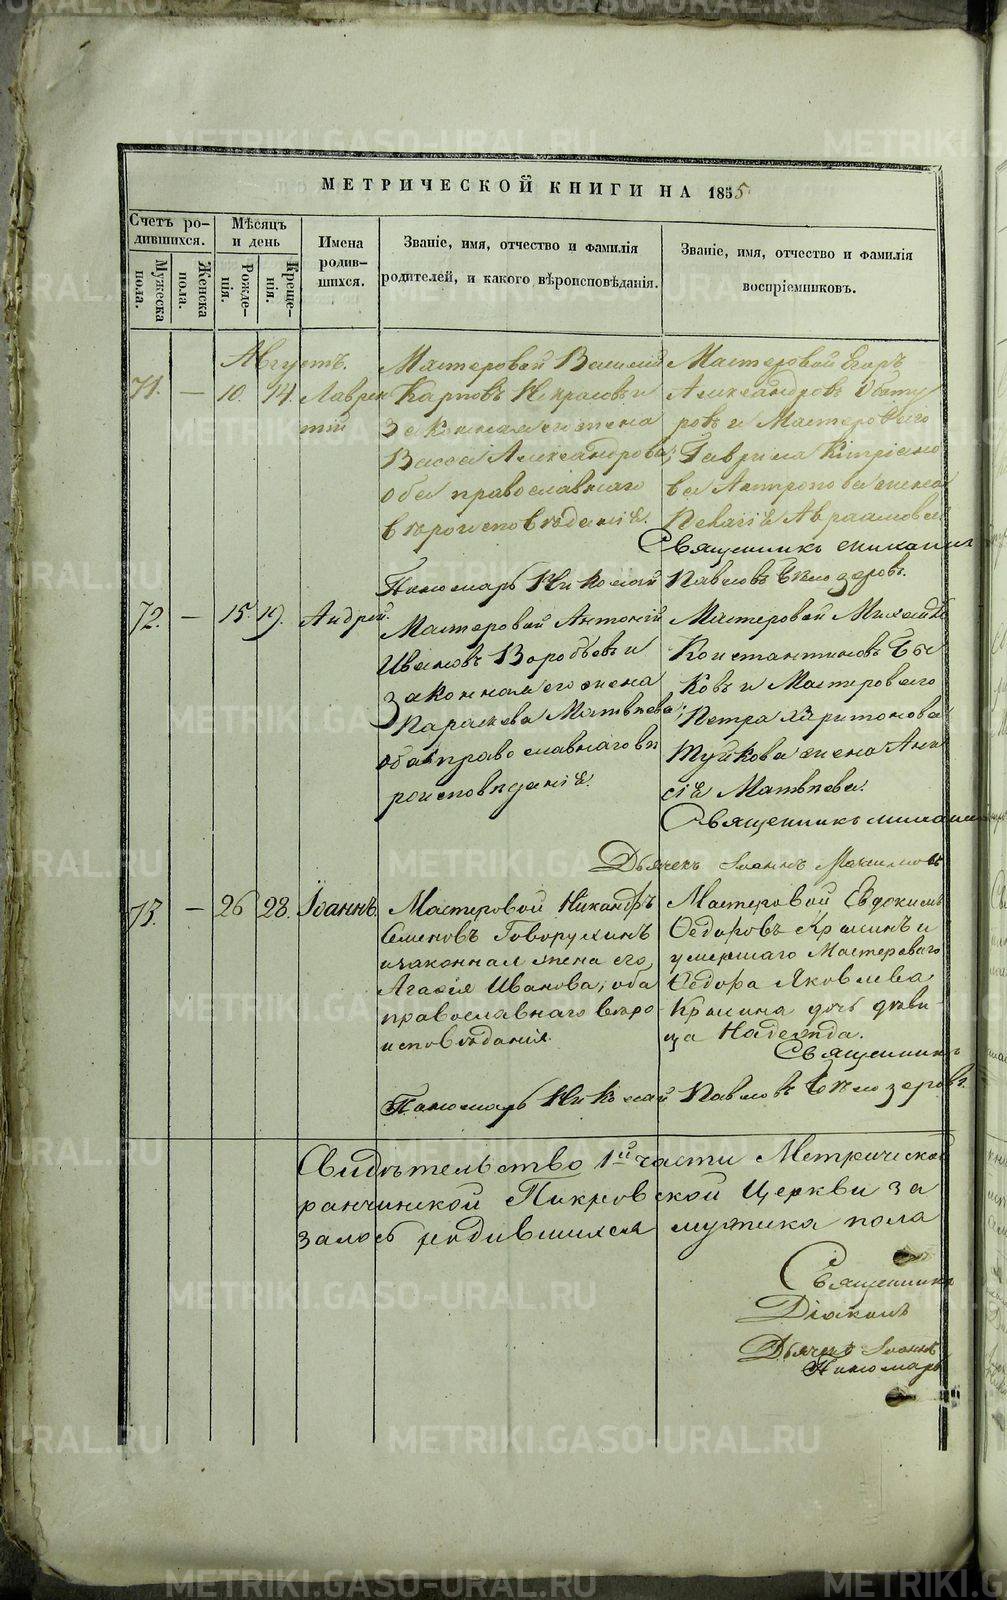 МЕТРИЧЕСКОЙ КНИГИ НА 1855
Счетъ ро-
дившихся.
Мужеска
пола.
Женска
пола.
Мѣсяцъ
и день
Рожде-
нія.
Креще-
нія.
Имена
родив-
шихся.
Званіе, имя, отчество и фамилія
родителей, и какого вѣроисповѣданія.
Званіе, имя, отчество и фамилія
воспріемниковъ.
Августъ.
71. — 10. 14. Лаврен
тій
Мастеровой Василій
Карповъ Некрасовъ и
Законная его жена
Васса Александрова;
оба православнаго
вѣроисповѣданія.
Мастеровой Егоръ
Александровъ
ровъ и Мастероваго
Гаврила
ва Антропова жена
Пелагія Авраамова.
Священникъ
Пономарь Николай Павловъ Бѣлозеровъ.
72. — 15. 19. Андрей.
Мастеровой Антоній
Ивановъ Воробьевъ и
Законная его жена
Параскева Матвѣева;
оба православнаго вѣ
роисповѣданія.
Мастеровой Михаилъ
Константиновъ Бы
ковъ и Мастероваго
Петра Харитонова
Туйкова жена Ани
сія Матвѣева.
Священникъ
Дьячекъ Іоаннъ
73. — 26 28. Іоаннъ.
Мастеровой Никандръ
Семеновъ Говорухинъ
и законная жена его,
Агафія Иванова, оба
православнаго вѣро
исповѣданія.
Мастеровой Евдокимъ
Ѳедоровъ Крашинъ и
умершаго Мастероваго
Ѳедора Яковлева
Крашина дочь дѣви-
ца Надежда.
Священникъ
Пономарь Николай Павловъ Бѣлозеровъ.
Свидѣтельство 1й части Метрической
ранчинской Покровской Церкви за
залось родившихся мужеска пола
Священникъ
Діаконъ
Дьячекъ Іоаннъ
Пономарь
METRIKI.GASO-URAL.RU